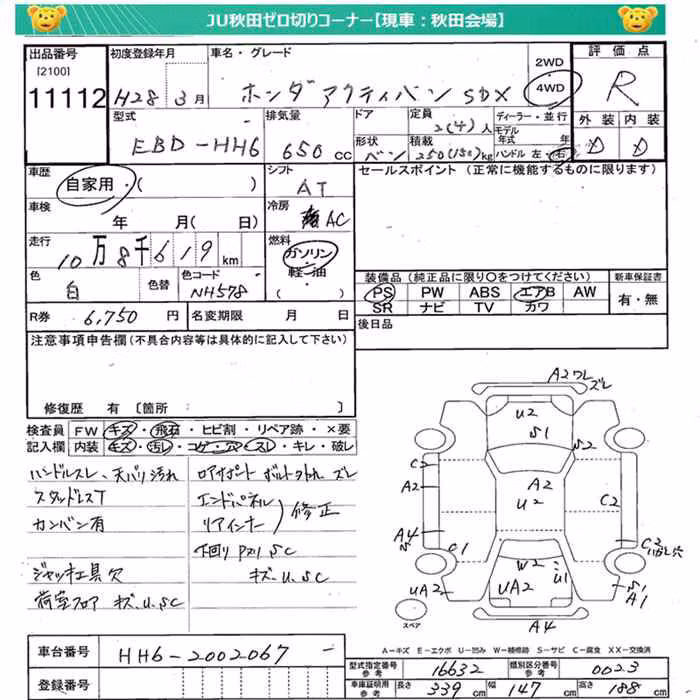 JU秋田ゼロ切りコーナー【現車：秋田会場】
出品番号 初度登録年月 車名・グレード 2WD 評価点
[2100] 11112 H28年 3月 ホンダ アクティバン SDX 4WD R
型式 排気量 ドア 定員 ディーラー・並行 外装 内装
EBD-HH6 650cc 2(4)人 モデル年式 年 D D
形状 バン 積載 250(150)kg ハンドル 左・右
車歴 シフト セールスポイント（正常に機能するものに限ります）
自家用・( ) AT
車検 冷房
年 月(日) AC
走行 燃料
10万8千619km ガソリン・軽油・( )
色 色替 色コード 装備品（純正品に限り○をつけてください） 新車保証書
白 NH578 PS PW ABS エアB AW 有・無
SR ナビ TV カワ
R券 6,750円 名変期限 月 日 後日品
注意事項申告欄（不具合内容等は具体的に記入して下さい）
修復歴 有 〔箇所 〕
検査員 FW キズ・飛石・ヒビ割・リペア跡・×要
記入欄 内装 キズ・汚レ・コゲ・穴・スレ・キレ・破レ
ハンドルスレ、天バリ汚れ ロアサポート ボルト外れ ズレ
スタッドレスT エンドパネル
カンバン有 リアインナー 修正
下回り Pスリ SC
ジャッキ工具欠 キズ・U、SC
荷室フロア キズ、U、SC
A2ワレ ズレ
U2
S1 S2
C2 A2
A2 U2 C2
A4
S C1 W2 C2
ハガレ穴
UA2 UA2 U1 S1
A1
スペア A4
A－キズ E－エクボ U－凹み W－補修跡 S－サビ C－腐食 XX－交換済
車台番号 HH6-2002067
登録番号
型式指定番号 参考 16632 類別区分番号 参考 0023
車庫証明用 参考 長さ 339cm 幅 147cm 高さ 188cm